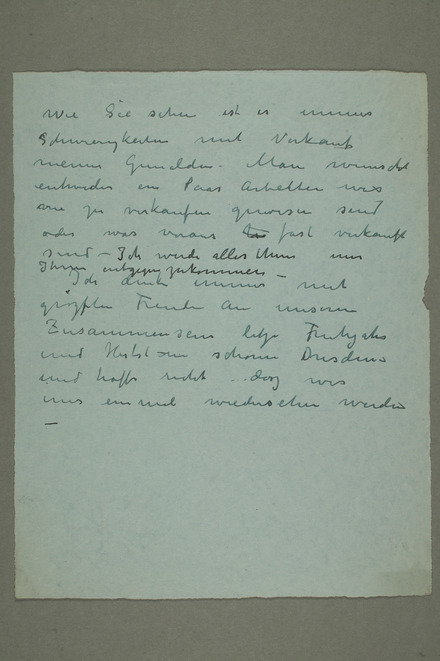 Wie Sie sehen ist es immer
Schwierigkeiten mit Verkauf
meiner Gemälde. Man wünscht
entweder ein Paar Arbeiten was
nie zu verkaufen gewesen sind
oder was voraus fast verkauft
sind – Ich werde alles thun um
Ihnen entgegenzukommen –
Ich denke immer mit
größten Freude an unseren
Zusammensein letzte Frühjahr
und Herbst im schönen Dresden
und hoffe wir
uns einmal wiedersehen werden
–